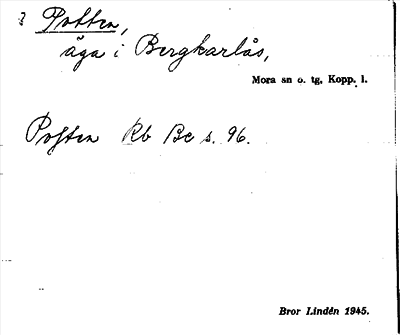 ? Potten,
äga i Bergkarlås,
Mora sn o. tg, Kopp. l.
Potten Rb Be s. 96.
Bror Lindén 1945.